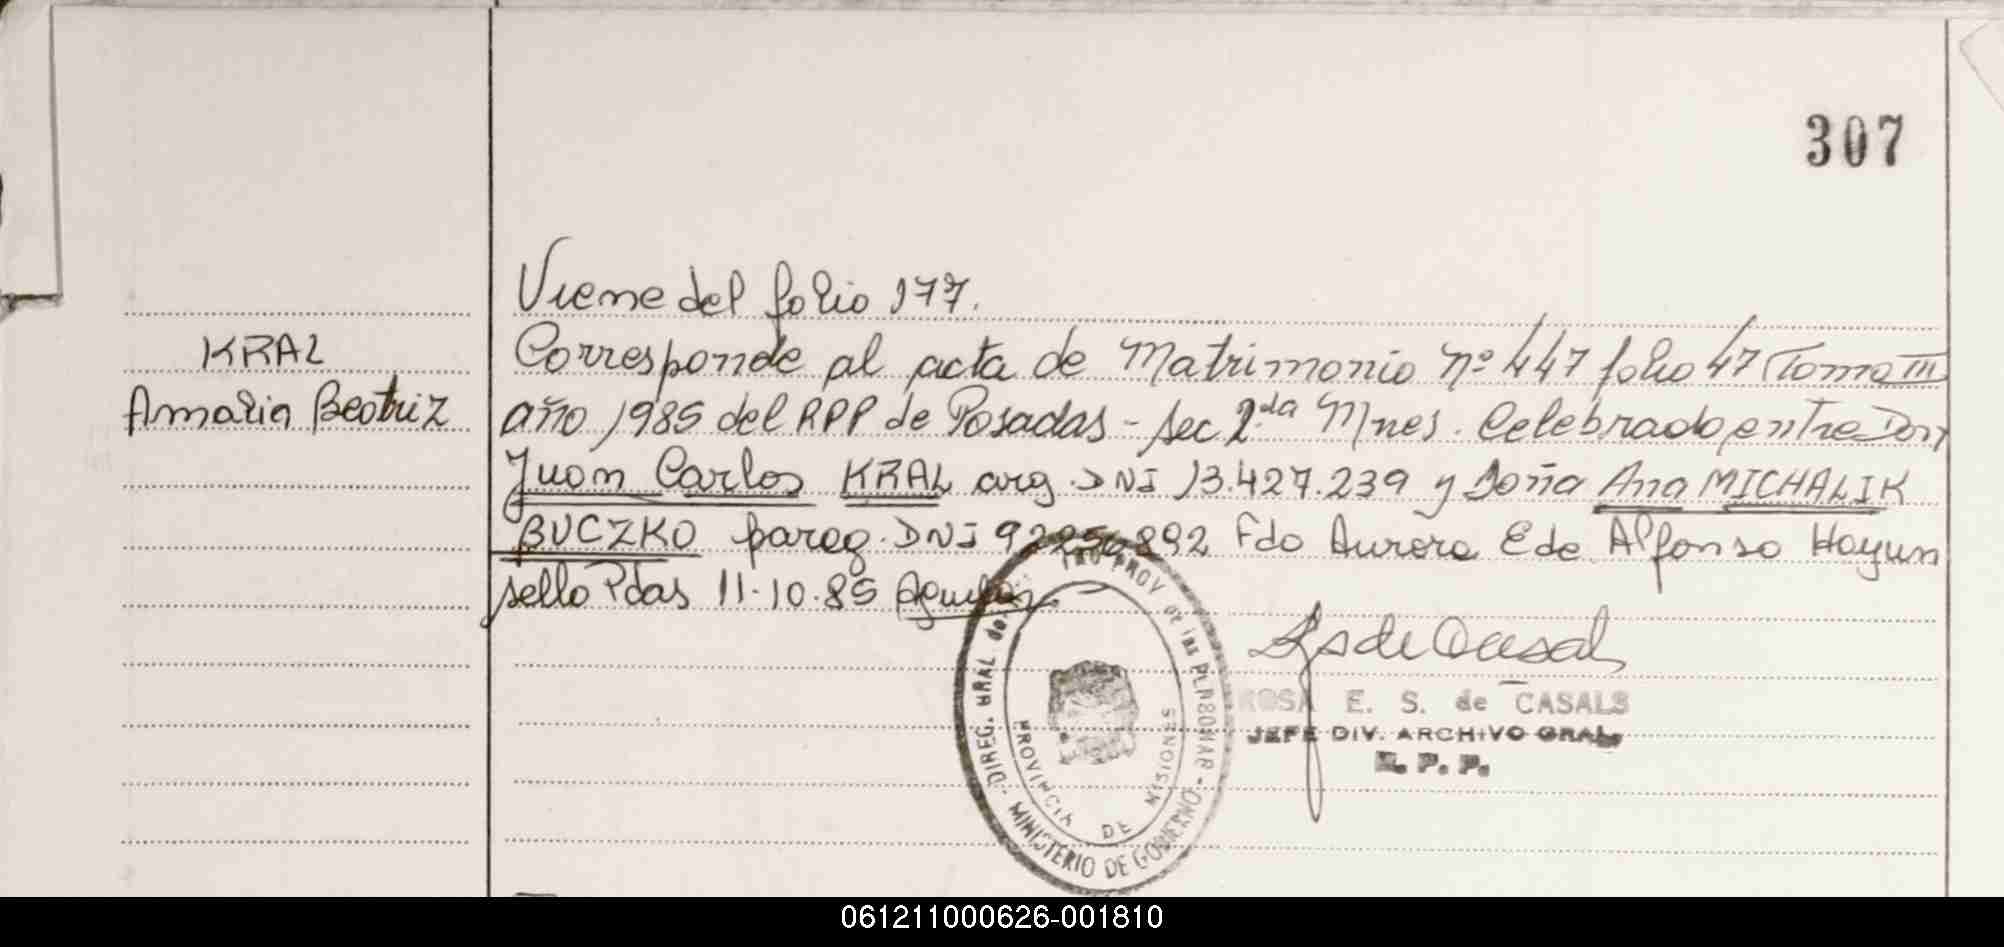 307
Viene del folio 177.
KRAL
Amalia Beatriz
Corresponde al acta de Matrimonio nº 447 folio 47 Tomo III
año 1985 del RPP de Posadas - sec 2.da Mnes. Celebrado entre Don
Juan Carlos KRAL arg. DNI 13.427.239 y Doña Ana MICHALIK
BUCZKO parag. DNI 92256892 Fdo Aurora E de Alfonso Hay un
sello Pdas 11-10-85
ROSA E. S. de CASALS
JEFE DIV. ARCHIVO GRAL.
R. P. P.
DIREG. GRAL del PROV de las PERSONAS - MINISTERIO DE GOBIERNO
PROVINCIA DE MISIONES
061211000626-001810